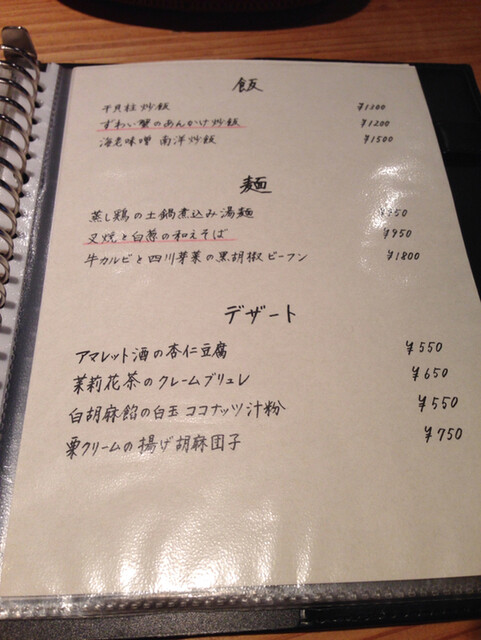 飯
干貝柱炒飯 ¥1300
ずわい蟹のあんかけ炒飯 ¥1200
海老味噌 南洋炒飯 ¥1500
麺
蒸し鶏の土鍋煮込み湯麺
叉焼と白葱の和えそば ¥950
牛カルビと四川芽菜の黒胡椒ビーフン ¥1800
デザート
アマレット酒の杏仁豆腐 ¥550
茉莉花茶のクレームブリュレ ¥650
白胡麻餡の白玉 ココナッツ汁粉 ¥550
栗クリームの揚げ胡麻団子 ¥750